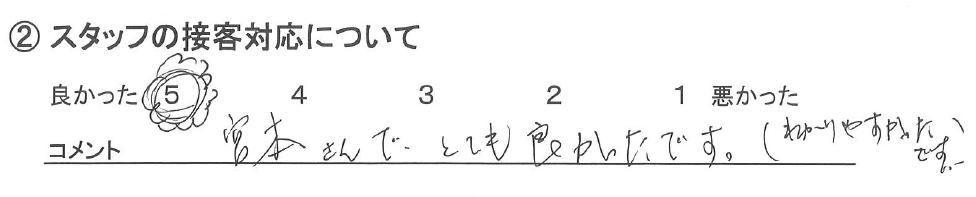 ② スタッフの接客対応について
良かった 5 4 3 2 1 悪かった
コメント 宮本さんで、とても良かったです。(わかりやすかった
です。)